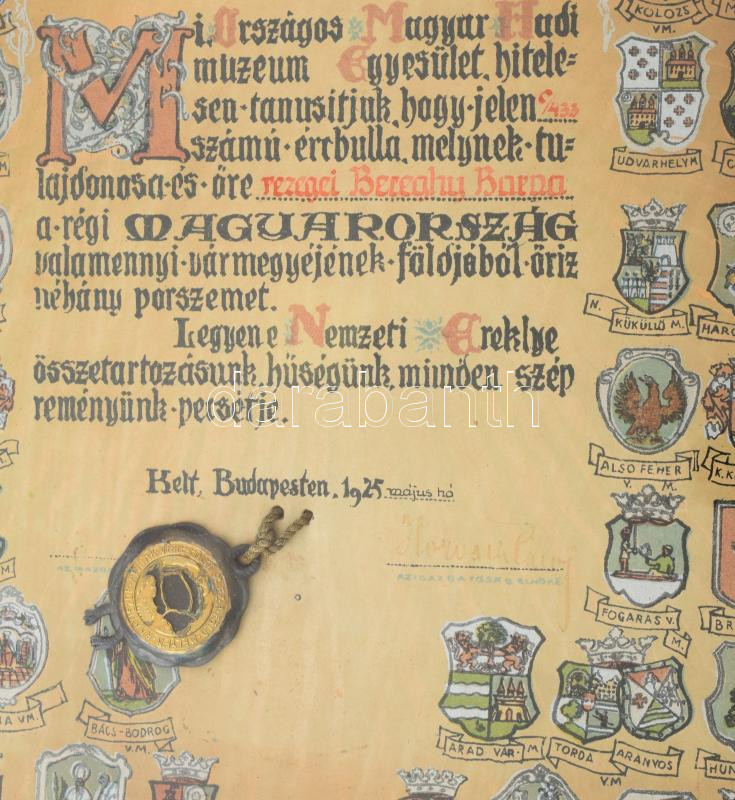 Mi, Országos Magyar Hadi
muzeum Egyesület, hitele-
sen tanusitjuk, hogy jelen C/433
számú ércbulla, melynek tu-
lajdonosa és őre rezegei Bereghy Barna
a régi MAGYARORSZÁG
valamennyi vármegyéjének földjából őriz
néhány porszemet.
Legyen e Nemzeti Ereklye
összetartozásunk, hüségünk, minden szép
reményünk pecsétje.
Kelt, Budapesten, 1925 május hó
AZ IGAZGATÓSÁG ELNÖKE
KOLOZS
VM.
UDVARHELY M
N. KÜKÜLLŐ M.
ALSÓ FEHÉR
V. M.
FOGARAS V.
M.
BÁCS-BODROG
V.M.
ARAD VÁR. M
TORDA ARANYOS
V.M
darabanth